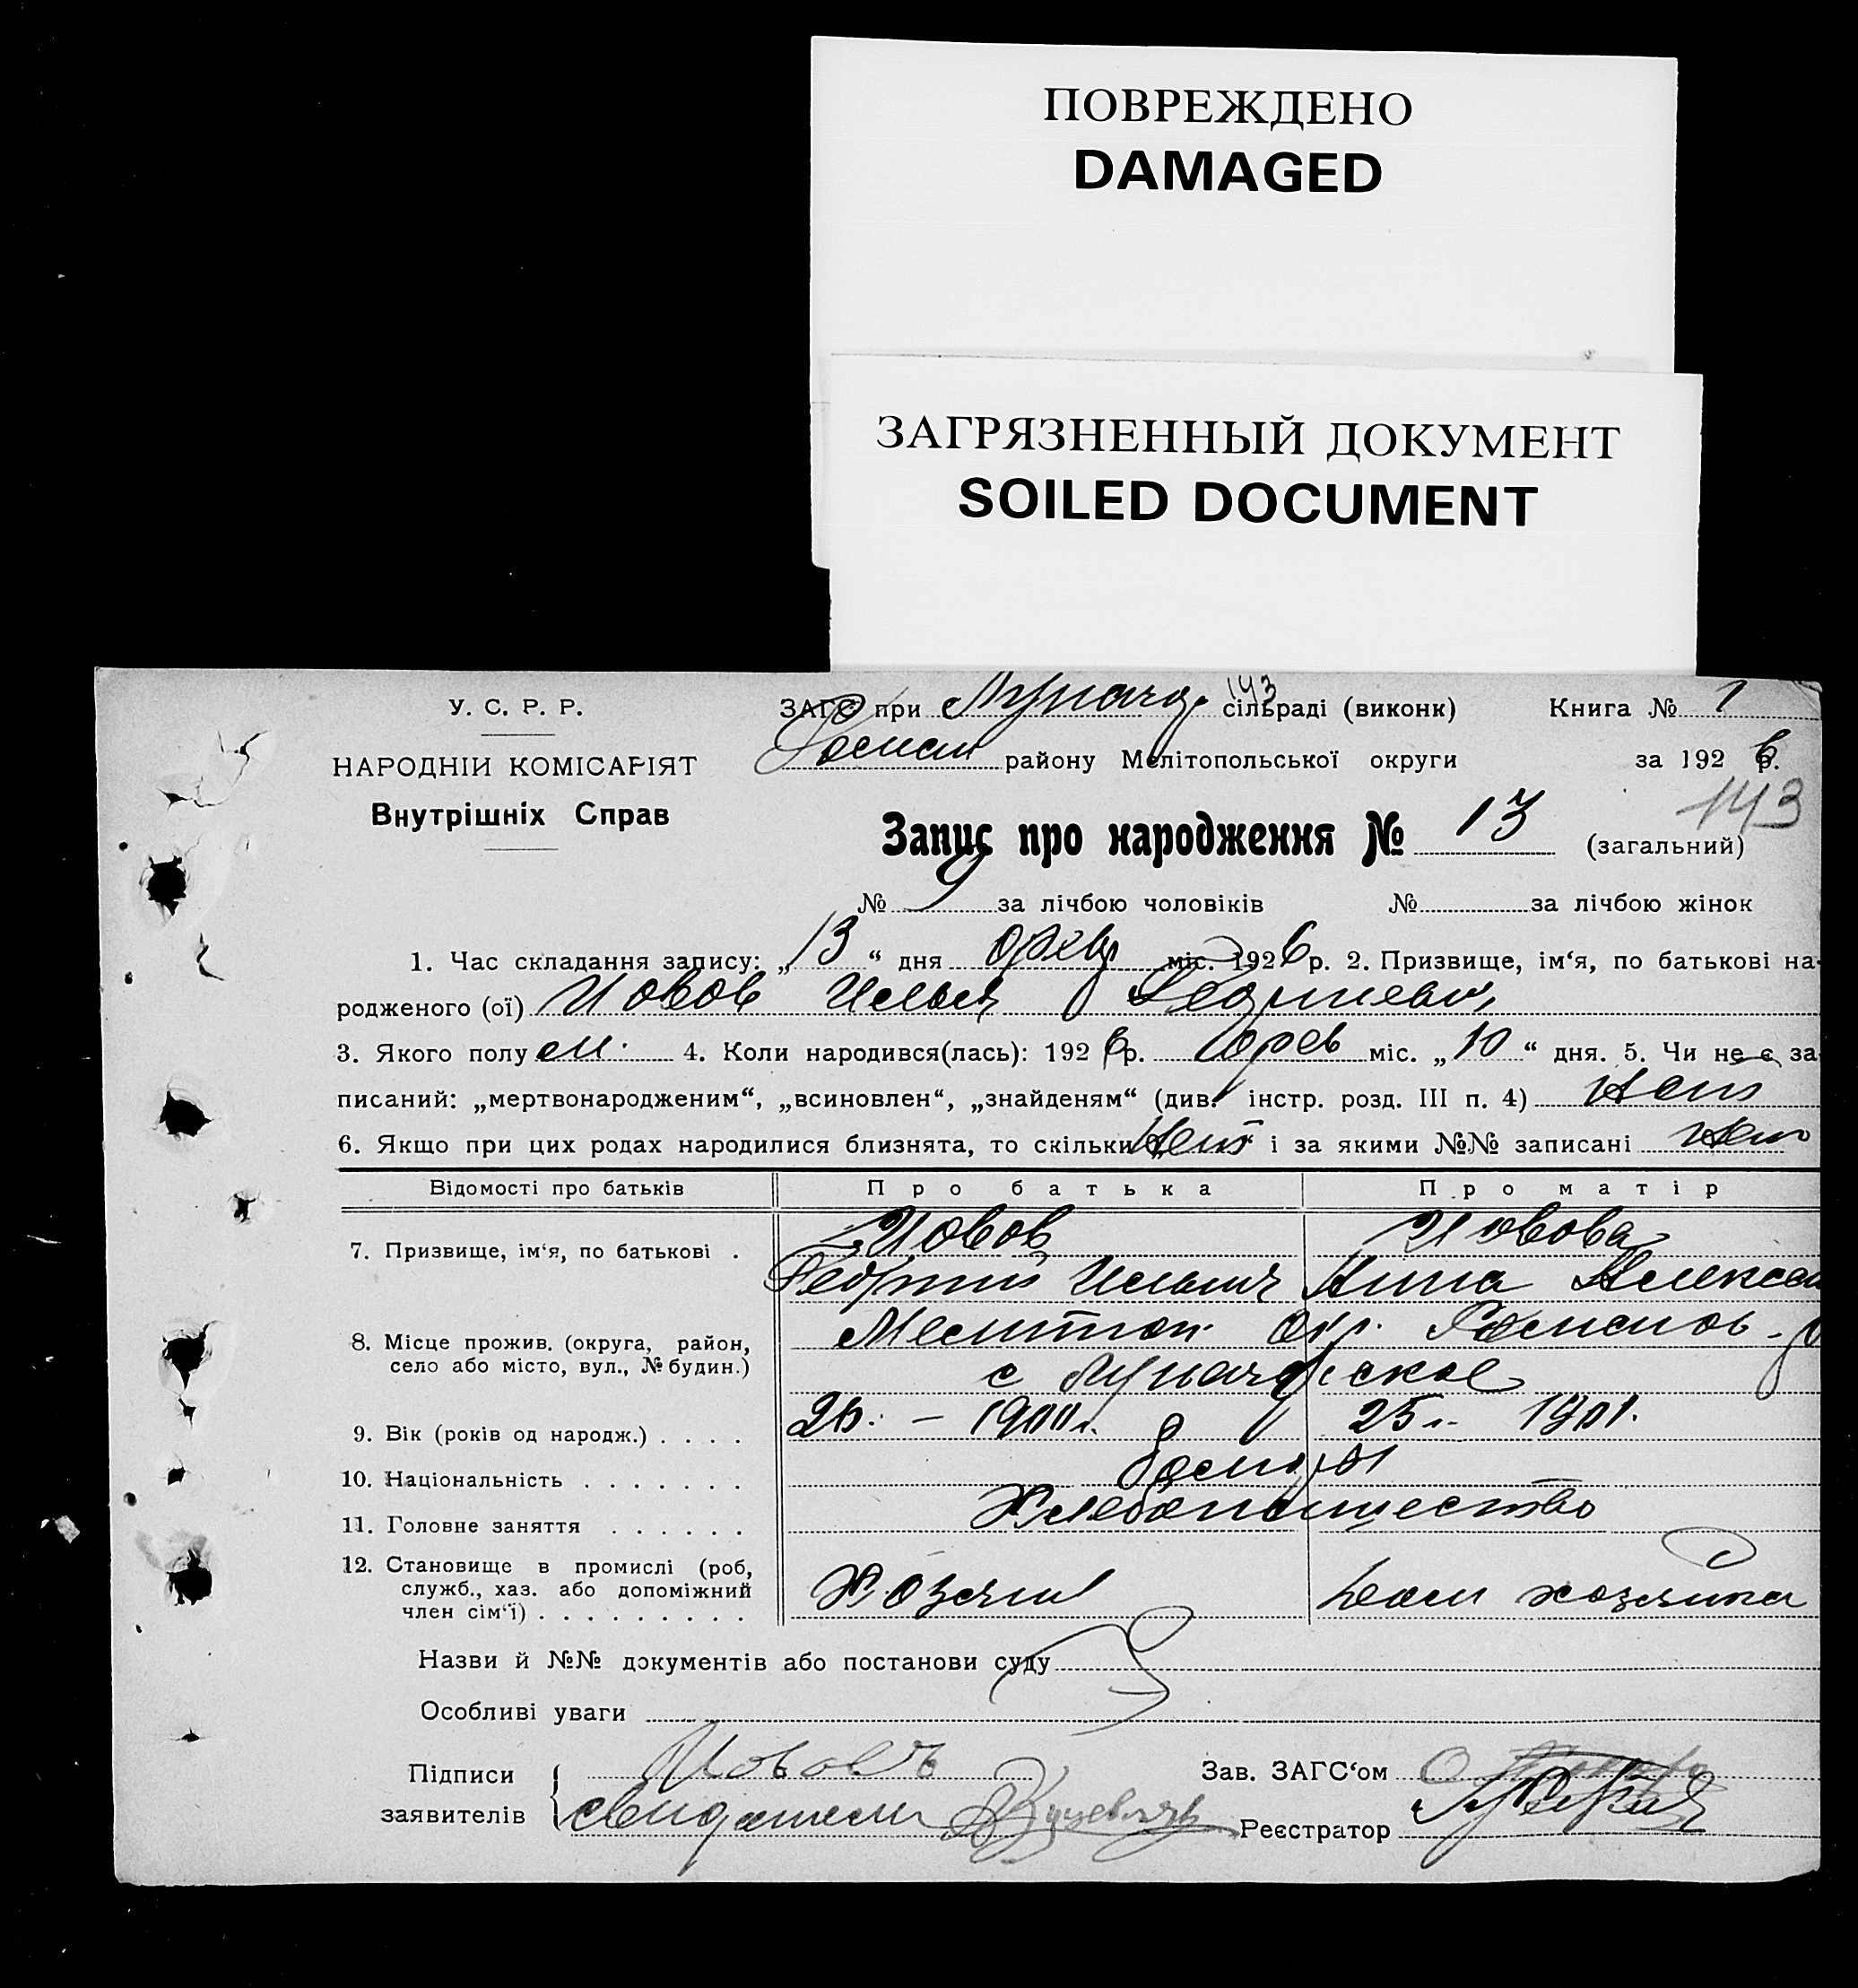 ПОВРЕЖДЕНО
DAMAGED
ЗАГРЯЗНЕННЫЙ ДОКУМЕНТ
SOILED DOCUMENT
143
У. С. Р. Р. ЗАГС при Лунача. сільраді (виконк) Книга № 1
НАРОДНІЙ КОМІСАРІЯТ Роман району Мелітопольської округи за 1926 р.
Внутрішніх Справ
143
Запис про народження № 13 (загальний)
№ 9 за лічбою чоловіків № за лічбою жінок
1. Час складання запису: „13“ дня февр міс. 1926 р. 2. Призвище, ім‘я, по батькові на-
родженого (ої) Иовов Илья Георгиевич
3. Якого полу м. 4. Коли народився(лась): 1926 р. фев міс. „10“ дня. 5. Чи не є за-
писаний: „мертвонародженим“, „всиновлен“, „знайденям“ (див. інстр. розд. III п. 4) Нет
6. Якщо при цих родах народилися близнята, то скільки Нет і за якими №№ записані Нет
Відомості про батьків Про батька Про матір
7. Призвище, ім‘я, по батькові . Иовов Иовова
Георгий Ильич Анна Алексе
8. Місце прожив. (округа, район, село або місто, вул., № будин.) Мелитоп. Окр. Романов-
с Луначарское
9. Вік (років од народж.) . . . . 26. – 1900 г. 25 г. 1901.
10. Національність . . . . . . . Болгары
11. Головне заняття . . . . . . Хлебопашество
12. Становище в промислі (роб, служб., хаз. або допоміжний член сім‘ї) . . . . . . . . . Хозяин Дом хозяйка
Назви й №№ документів або постанови суду
Особливі уваги
Підписи заявителів Иововъ Зав. ЗАГС‘ом
свидетели Реєстратор